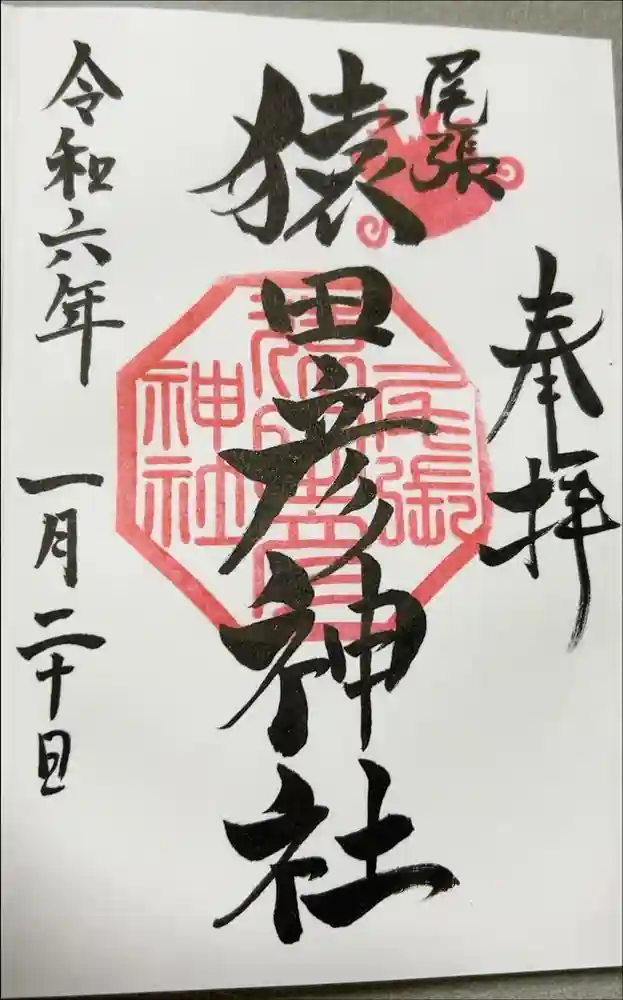 奉拝
尾張
猿田彦神社
尾張
神社
令和六年 一月二十日